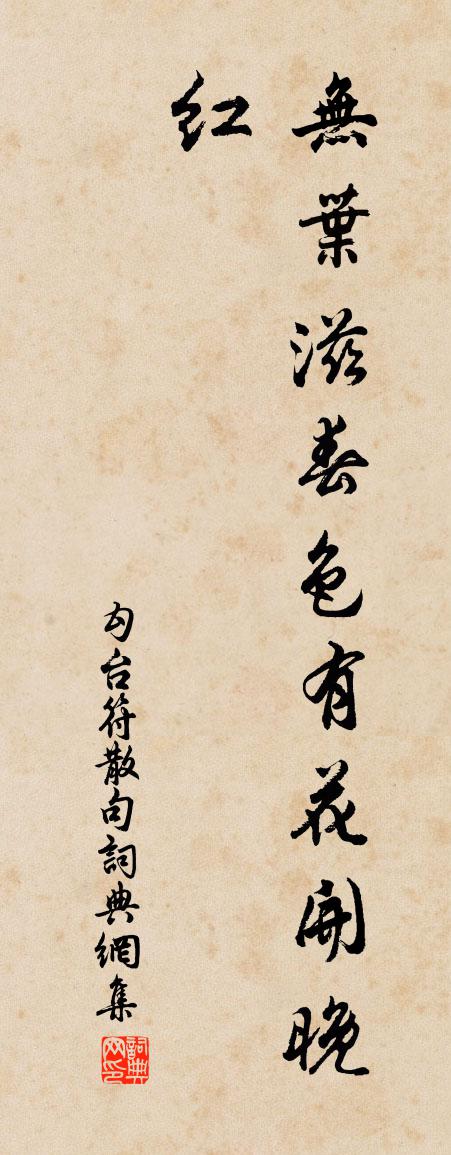 無葉滋春色有花開晚
紅
勾台符散句詞典網集
詞典网印